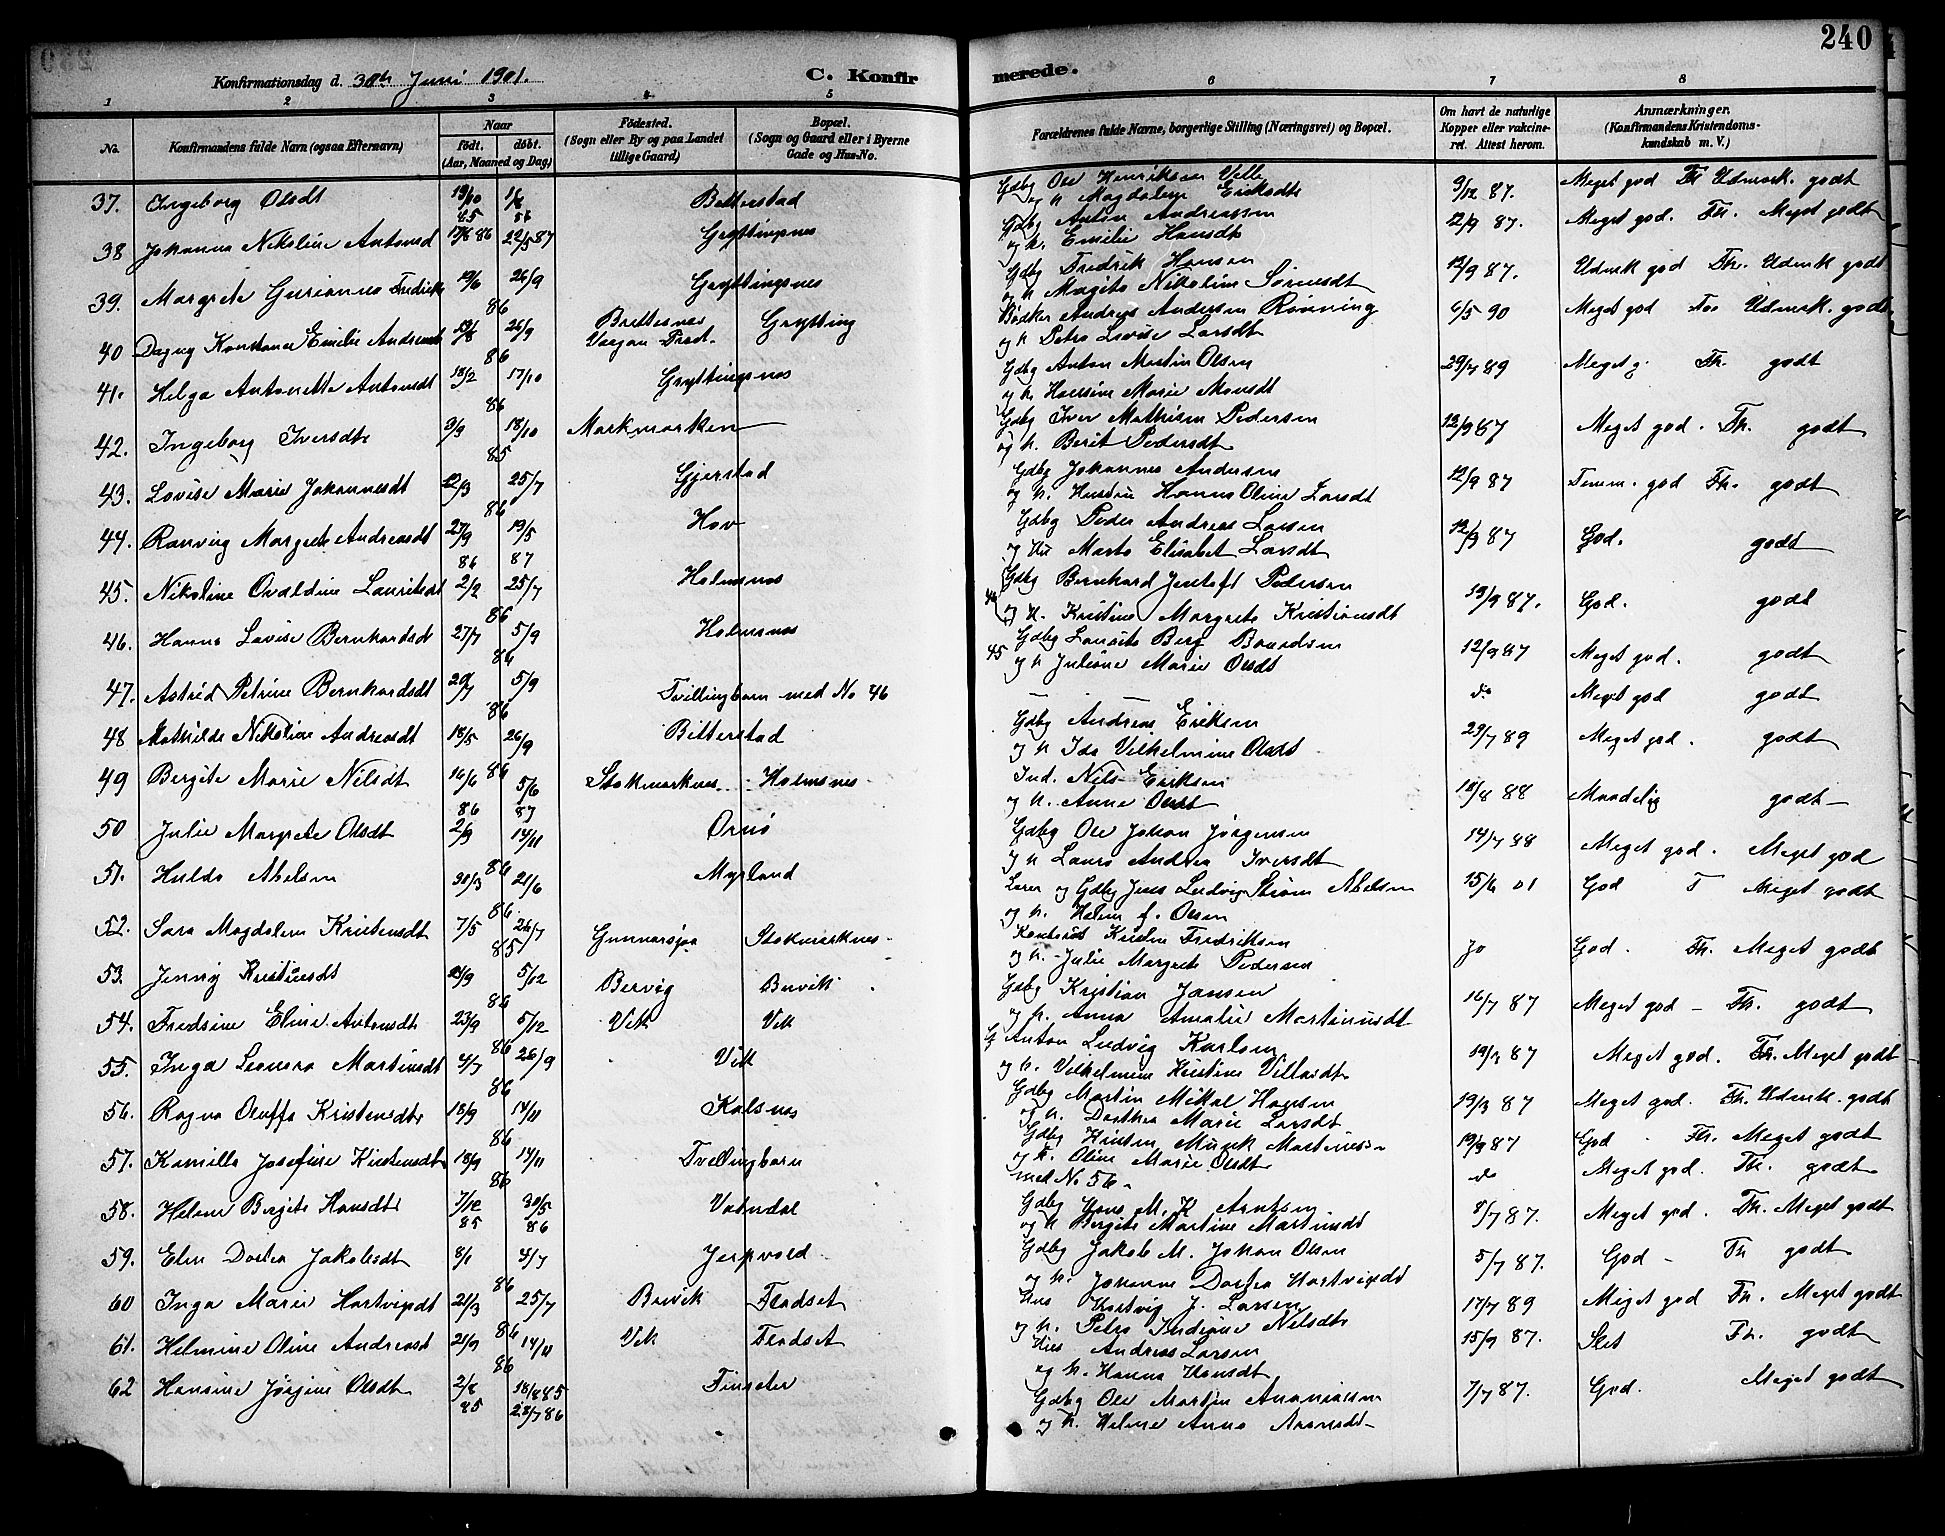 240
Konfirmationsdag d. 30te Juni 1901.
C. Konfirmerede.
1 2 3 4 5 6 7 8
No.
Konfirmandens fulde Navn (ogsaa Efternavn)
Naar
født. døbt.
(Aar, Maaned og Dag)
Fødested.
(Sogn eller By og paa Landet
tillige Gaard)
Bopæl.
(Sogn og Gaard eller i Byerne
Gade og Hus-No.
Forældrenes fulde Navne, borgerlige Stilling (Næringsvei) og Bopæl.
Om havt de naturlige
Kopper eller vakcineret. Attest herom.
Anmærkninger.
(Konfirmandens Kristendomskundskab m. V.)
37. Ingeborg Olsdt 19/10 85 Bitterstad Gdbg Ole Henriksen Velle 9/12 87. Meget god Fh Udmærk. godt
og h Magdalene Eriksdtr
38 Johanna Nikoline Antonsd 17/8 86 22/5 87 Gryttingsnes Gdbg Anton Andreassen 12/9 87. Meget god. Fh. Meget godt
og h. Emilie Hansdtr
39. Margrete Gurianna Fredrik 19/6 26/9 86 Gryttingsnes Gdbg Fredrik Hansen 12/9 87. Udmk god Fh. Udmk godt
og h Magita Nikoline Sørensdt
40 Dagny Konstance Emilie Andreasdt 19/8 26/9 86 Brettesnes Vaagan Præst. Grytting Bødker Andreas Andersen Rønning 6/5 90 Meget god Fh. Udmærk. godt
og h Petra Lovise Larsdt
41. Helga Antonette Antonsdt 18/2 17/10 86 Gryttingsnes Gdbg Anton Martin Olsen 29/7 89 Meget g. Fh. godt
og h Hansine Marie Monsdt
42. Ingeborg Iversdtr 9/9 18/10 85 Markmarken Gdbg Iver Mathisen Pedersen 12/9 87 Meget god. Fh. godt
og h. Berit Pedersdtr
43. Lovise Marie Johannesdt 12/3 25/7 86 Gjerstad Gdbg Johannes Andersen 12/9 87 Temm. god Fh. godt
og h. Hanna Oline Larsdt
44. Ranveig Margrete Andreasdt 27/9 86 19/5 87 Hov Gdbg Peder Andreas Larsen 12/9 87 God. godt
og Marta Elisabet Larsdtr
45. Nikoline Ovaldine Lauritsdt 2/2 25/7 86 Holmsnes 46 Gdbg Bernhard Jentoft Pedersen 19/9 87. God. godt
og h. Kristine Margrete Kristiansdt
46. Hanna Lovise Bernhardsdt 27/7 5/9 86 Holmsnes 45 Gdbg Laurits Berg Baardsen 12/9 87 Meget god. godt
og h Juliane Marie Olsdt
47. Astrid Petrine Bernhardsdt 5/9 86 Tvillingbarn med No 46 do Meget god godt
48 Mathilde Nikoline Andreasdt 18/5 26/9 86 Bitterstad Gdbg Andreas Eriksen 29/7 89 Meget god. godt
og h Ida Vilhelmine Olsdt
49 Bergite Marie Nilsdt 16/6 86 5/6 87 Stokmarknes Holmsnes Ind. Nils Eriksen 88 Maadelig godt
og h. Anne Olsdt
50 Julie Margrete Olsdt 2/9 14/11 86 Ornø Gdbg Ole Johan Jørgensen 14/7 88 Meget god. Meget god
og h Laura Andrea Iversdt
51. Hulda Abelsen 30/3 21/6 86. Myrland Lærer og Gdbg Jens Ludvig Strøm Abelsen 15/6 01 God T Meget godt
og h. Helene f. Olsen
52. Sara Magdalena Kristensdt 7/5 26/7 85 Gunnarsjaa Stokmarknes Kristen Fredriksen Jo God. Fh. Meget godt
og h. Julie Margrete Pedersen
53. Jenny Kristiansdt 5/12 86 Bervig Buvik Gdbg Kristian Jansen 16/7 87 Meget god Fh. godt
og h. Anna Amalie Martinusdt
54. Fredsine Eline Antonsdtr 23/9 5/12 86 Vik Vik G Anton Ludvig Karlsen 87 Meget god. Fh. Meget godt
og h. Vilhelmine Kristine Villasdtr
55. Inga Leonora Martinsdt 4/7 26/9 86 Vik Gdbg Martin Mikal Hansen 87 Meget god. Fh. Udmk. godt
og h. Dorthea Marie Larsdt
56. Ragna Oluffa Kristensdtr 18/9 14/11 86 Kalsnes Gdbg Kristen Munk Martinussen 19/9 87 God Fh. Meget godt
og h. Oline Marie Olsdtr
57. Kamilla Josefine Kristensdtr 18/9 14/11 86 Tvillingbarn med No 56 do Meget god. Fh. godt
58. Helene Bergite Hansdtr 7/12 85 30/5 86 Vatndal Gdbg Hans M. K Arntsen 8/7 87. Meget god. Fh. Meget godt
og h Bergite Martine Martinsdt
59. Elen Dortea Jakobsdt 8/1 4/7 86 Jerpvold Gdbg Jakob M. Johan Olsen 5/7 87. God - Fh godt
og h. Johanne Dortea Hartvigsdt
60 Inga Marie Hartvigsdt 21/3 25/7 86 Buvik Fladset Hus Hartvig J. Larsen 17/7 89 Meget god Fh. Meget godt
og h. Petra Indiane Nilsdtr
61. Helmine Oline Andreasdt 21/9 14/11 86 Vik Fladset Hus Andreas Larsen 15/9 87. Slet Fh. godt
og h. Hanna Hansdt
62 Hansine Jørgine Olsdt 2/8 85 18/8 85 28/7 86 Finsæter Gdbg Ole Martin Ananiassen 7/7 87. God. Meget godt
og h. Helene Anna